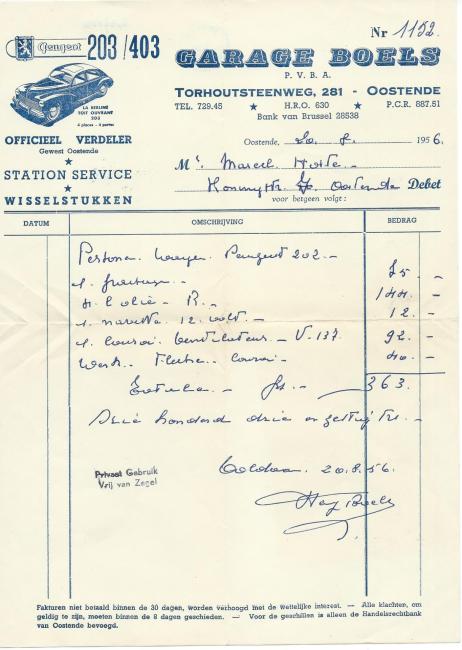 Peugeot 203/403
Nr 1152.
GARAGE BOELS
P. V. B. A.
TORHOUTSTEENWEG, 281 - OOSTENDE
TEL. 729.45 ★ H.R.O. 630 ★ P.C.R. 887.51
Bank van Brussel 28538
LA BERLINE
TOIT OUVRANT
203
4 places - 4 portes
OFFICIEEL VERDELER
Gewest Oostende
★
STATION SERVICE
★
WISSELSTUKKEN
Oostende, 20. 8. 1956.
Mr. Marcel
Oostende Debet
voor hetgeen volgt :
DATUM OMSCHRIJVING BEDRAG
Persona wagen Peugeot 202. -
75 -
4 l olie - R. - 144 -
12 volt - 12 -
1 courroi ventilateur - V. 137 92 -
Werk - courroi - 40 -
Totale - fr. - 363.
Drie honderd drie en zestig fr. -
Voldaan 20.8.56.
Privaat Gebruik
Vrij van Zegel
Fakturen niet betaald binnen de 30 dagen, worden verhoogd met de wettelijke interest. — Alle klachten, om
geldig te zijn, moeten binnen de 8 dagen geschieden. — Voor de geschillen is alleen de Handelsrechtbank
van Oostende bevoegd.